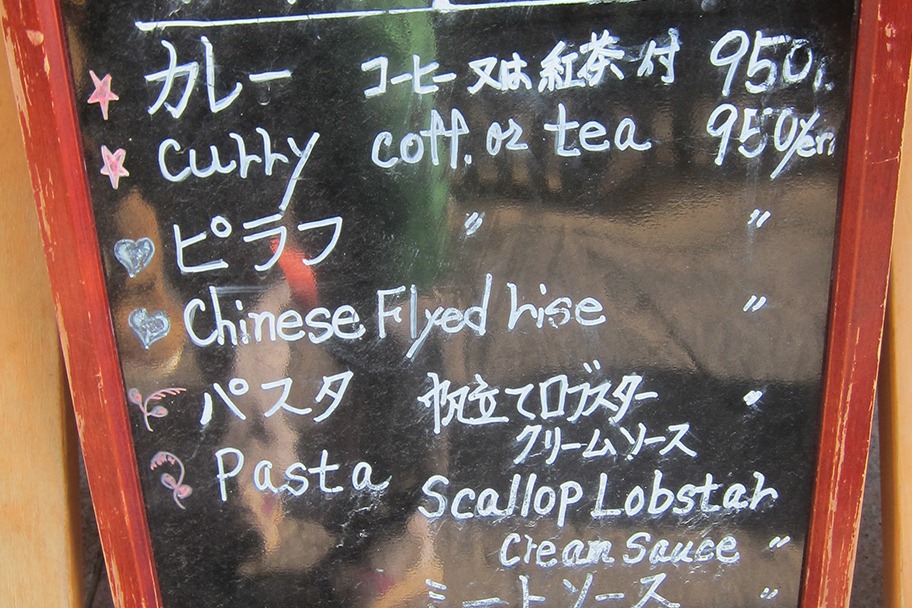 カレー コーヒー又は紅茶付 950
curry coff. or tea 950yen
ピラフ 〃 〃
Chinese Flyed hise 〃
パスタ 帆立てロブスター 〃
クリームソース
Pasta Scallop Lobstar
Cream Sauce 〃
ミートソース 〃